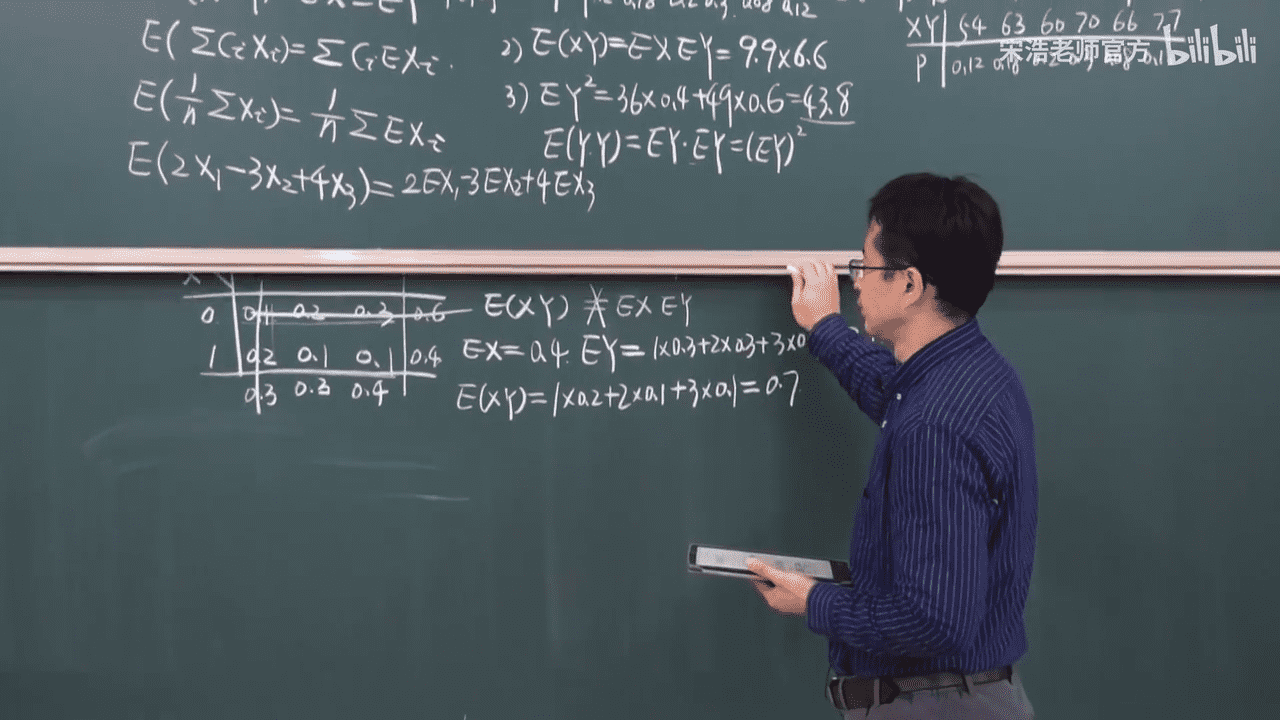 E(ΣCᵢXᵢ)=ΣCᵢEXᵢ.
E(1/n ΣXᵢ)=1/n ΣEXᵢ
E(2X₁-3X₂+4X₃)=2EX₁-3EX₂+4EX₃
2) E(XY)=EXEY=9.9×6.6
3) EY²=36×0.4+49×0.6=43.8
E(Y.Y)=EY.EY=(EY)²
XY 54 63 60 70 66 77
P 0.12
宋浩老师官方 bilibili
X Y
0 0.1 0.2 0.3 0.6
1 0.2 0.1 0.1 0.4
0.3 0.3 0.4
E(XY) ≠ EX EY
EX=0.4. EY=1×0.3+2×0.3+3×0
E(XY)=1×0.2+2×0.1+3×0.1=0.7